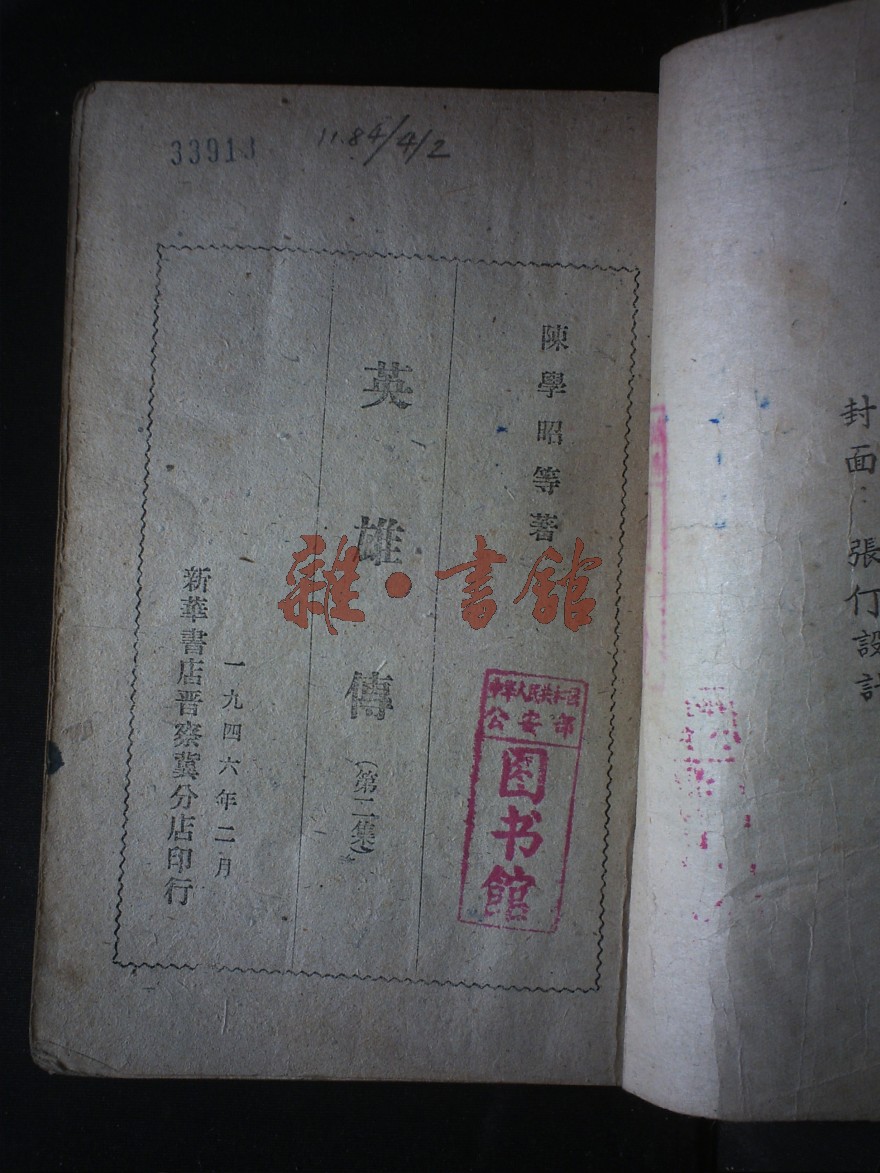 33913
11.84/4/2
陳學昭等著
英雄傳
(第二集)
一九四六年二月
新華書店晋察冀分店印行
中华人民共和国
公安部
图书馆
雜·書館
封面：張仃設計